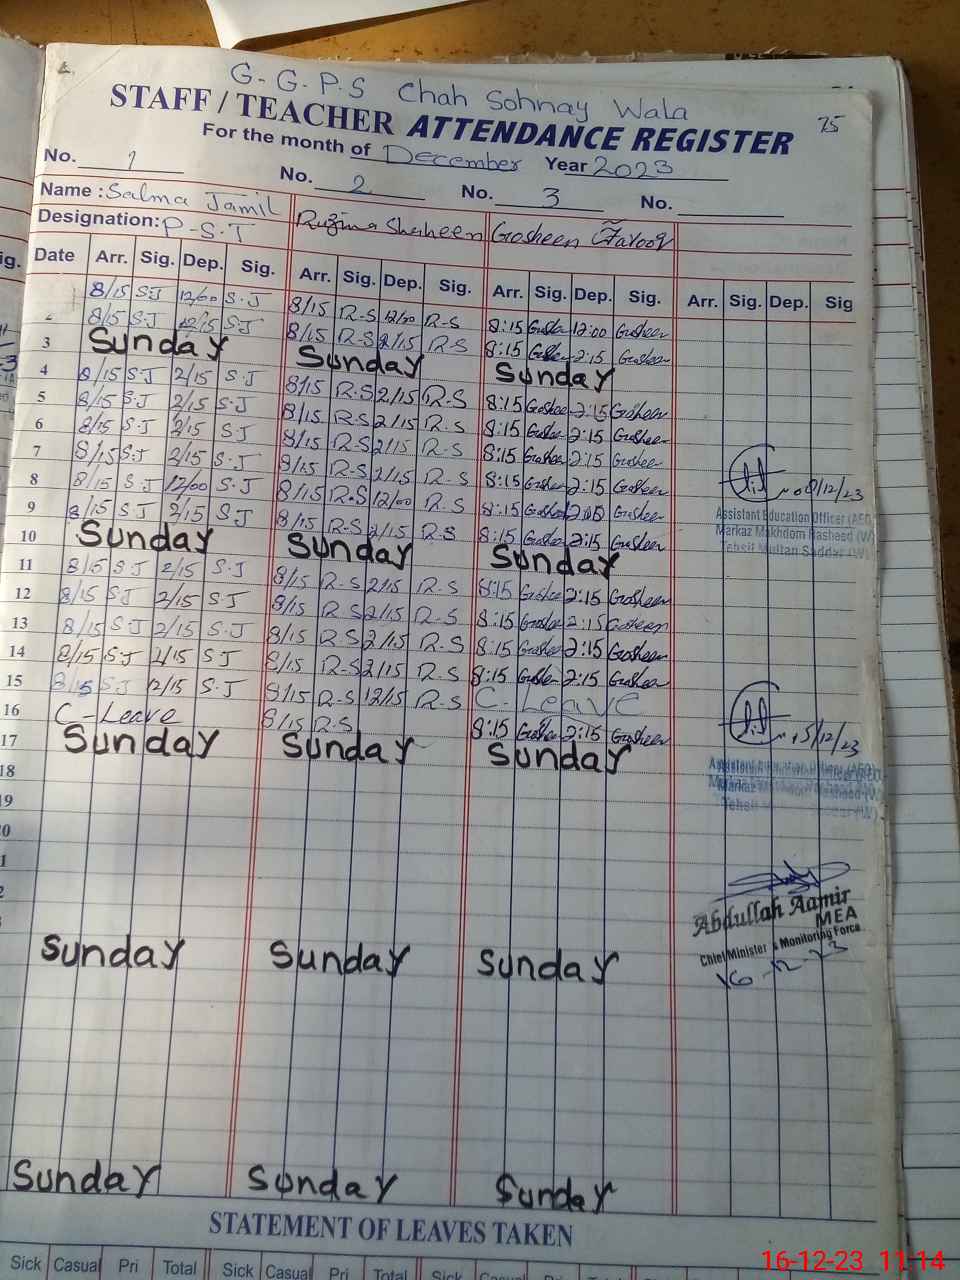 G-G-P-S Chah Sohnay Wala
STAFF / TEACHER ATTENDANCE REGISTER 75
For the month of December Year 2023
No. 1 No. 2 No. 3 No.
Name : Salma Jamil Ruzina Shaheen Gosheen Farooq
Designation: P-S-T
Date Arr. Sig. Dep. Sig. Arr. Sig. Dep. Sig. Arr. Sig. Dep. Sig. Arr. Sig. Dep. Sig
8/15 S.J 12/00 S.J 8/15 R-S 12/00 R-S 8:15 12:00 Gosheen
2 8/15 S.J 12/15 S.J 8/15 R-S 2/15 R-S 8:15 2:15 Gosheen
3 Sunday Sunday Sunday
4 8/15 S.J 2/15 S.J 8/15 R-S 2/15 R-S 8:15 Goshee 2:15 Gosheen
5 8/15 S.J 2/15 S.J 8/15 R-S 2/15 R-S 8:15 2:15 Gosheen
6 8/15 S.J 2/15 S.J 8/15 R-S 2/15 R-S 8:15 Goshee 2:15 Gosheen
7 8/15 S.J 2/15 S.J 8/15 R-S 2/15 R-S 8:15 2:15 Gosheen
8 8/15 S.J 12/00 S.J 8/15 R-S 12/00 R-S 8:15 Gosheen
9 8/15 S.J 2/15 S.J 8/15 R-S 2/15 R-S 8:15 2:15 Gosheen
10 Sunday Sunday Sunday
11 8/15 S.J 2/15 S.J 8/15 R-S 2/15 R-S 8:15 Goshee 2:15 Gosheen
12 8/15 S.J 2/15 S.J 8/15 R-S 2/15 R-S 8:15 2:15 Gosheen
13 8/15 S.J 2/15 S.J 8/15 R-S 2/15 R-S 8:15 2:15 Gosheen
14 8/15 S.J 2/15 S.J 8/15 R-S 2/15 R-S 8:15 2:15 Gosheen
15 8/15 S.J 12/15 S.J 8/15 R-S 12/15 R-S C-Leave
16 C-Leave 8/15 R-S 8:15 2:15 Gosheen
17 Sunday Sunday Sunday
18
19
20
Sunday Sunday Sunday
Sunday Sunday Sunday
08/12/23
Assistant Education Officer (AEO)
Markaz Makhdom Rasheed (W)
Tehsil Multan Saddar (W)
15/12/23
Abdullah Aamir
MEA
Chief Minister's Monitoring Force
16-12-23
STATEMENT OF LEAVES TAKEN
Sick Casual Pri Total Sick Casual Pri Total Sick Casual
16-12-23 11:14